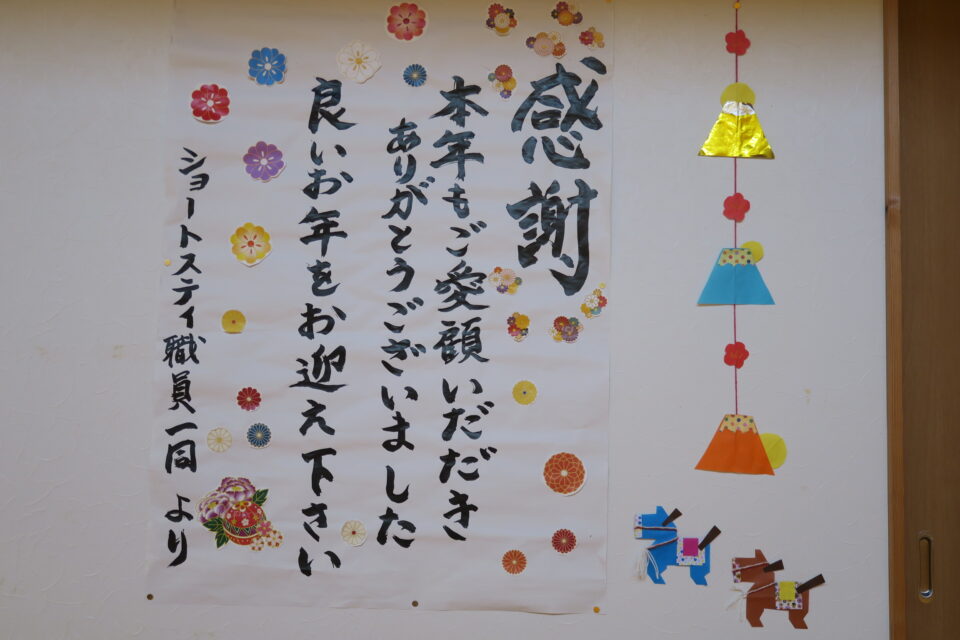 感謝
本年もご愛顧いだだき
ありがとうございました
良いお年をお迎え下さい
ショートスティ職員一同 より